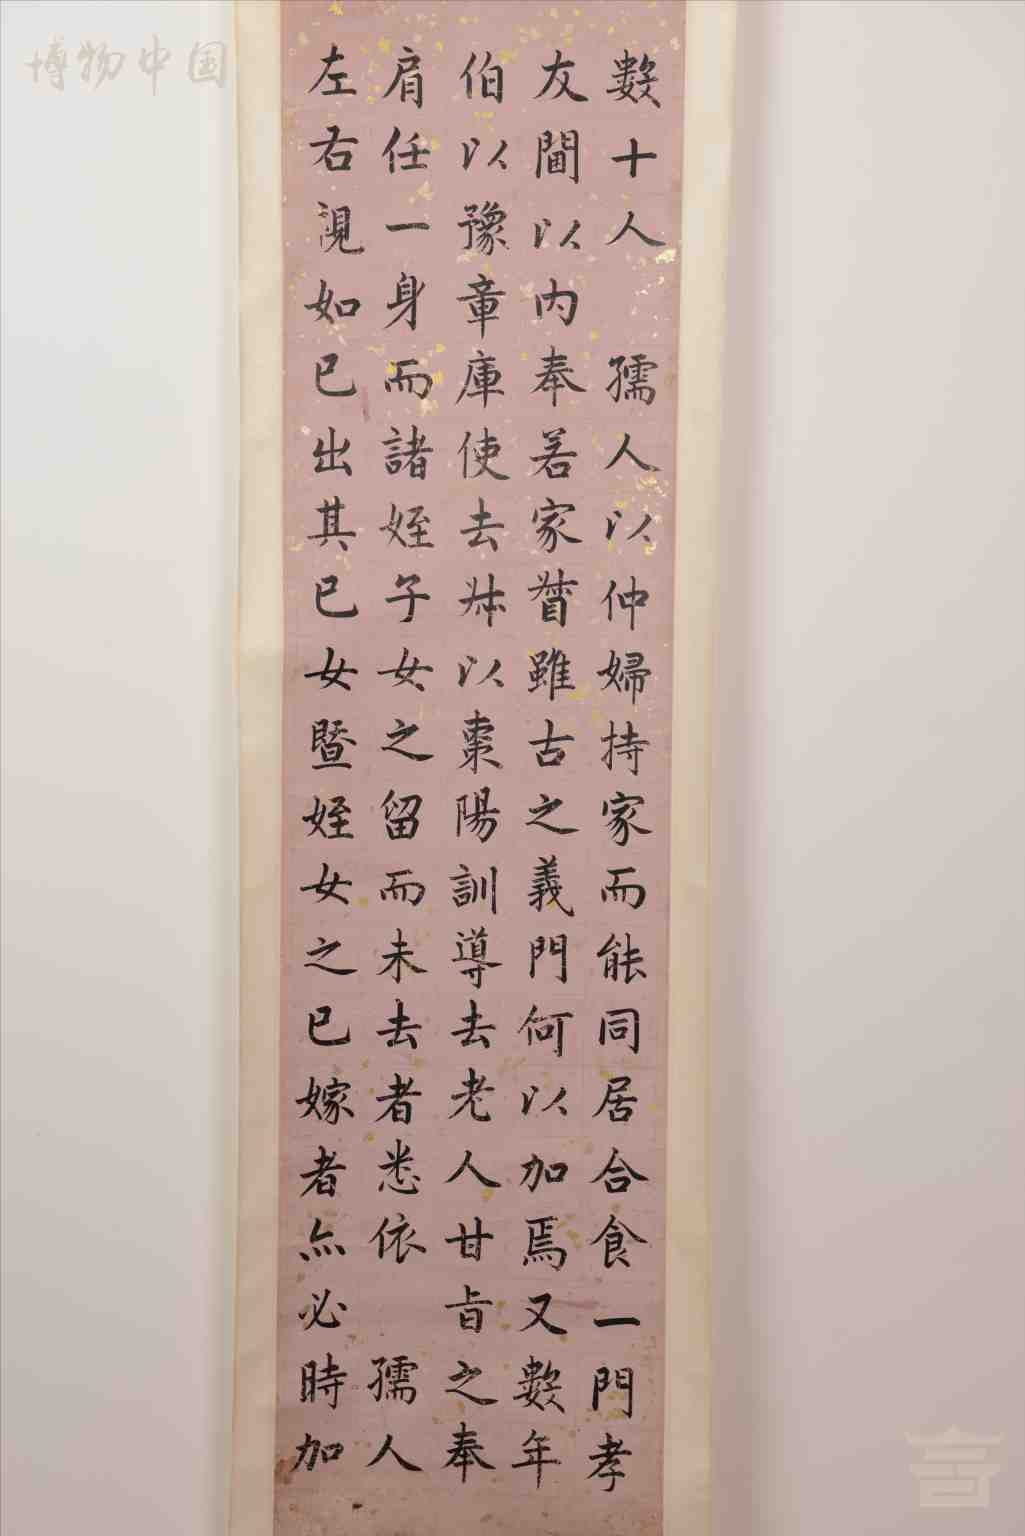 數十人 孺人以仲婦持家而能同居合食一門孝
友閫以内奉若家督雖古之義門何以加焉又數年
伯以豫章庫使去叔以棗陽訓導去老人甘旨之奉
肩任一身而諸姪子女之留而未去者悉依 孺人
左右視如已出其已女暨姪女之已嫁者亦必時加
博物中国